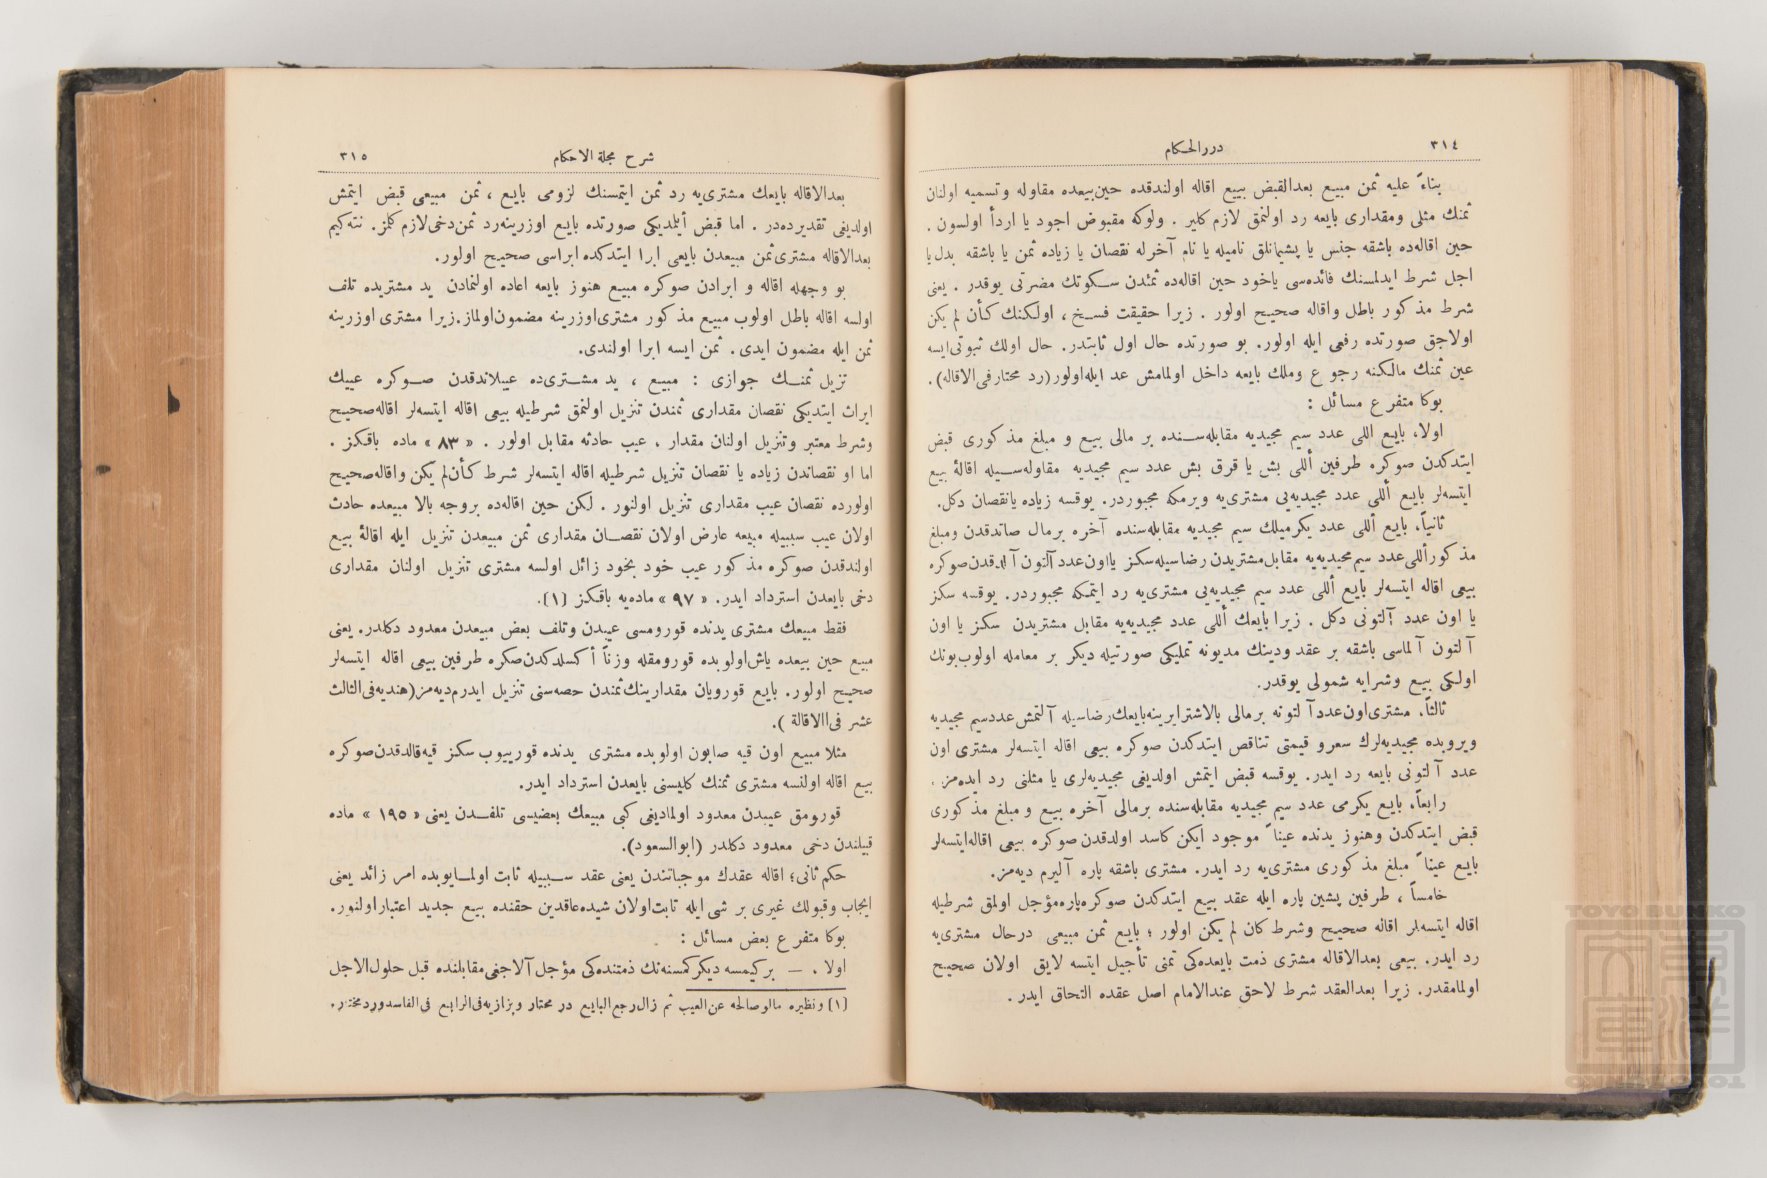 ٣١٤
دررالحكام
بناءً عليه ثمن مبيع بعدالقبض بييع اقاله اولندقده حين‌بيعده مقاوله وتسميه اولنان
ثمنك مثلى ومقدارى بايعه رد اولنمق لازم كلير . ولوكه مقبوض اجود يا اردأ اولسون .
حين اقاله‌ده باشقه جنس يا پشيمانلق ناميله يا نام آخرله نقصان يا زياده ثمن يا باشقه بدل‌يا
اجل شرط ايدلمسنك فائده‌سى ياخود حين اقاله‌ده ثمندن سكوتك مضرتى يوقدر . يعنى
شرط مذكور باطل واقاله صحيح اولور . زيرا حقيقت فسخ ، اولكنك كأن لم يكن
اولاجق صورتده رفعى ايله اولور. بو صورتده حال اول ثابتدر. حال اولك ثبوتى‌ايسه
عين ثمنك مالكنه رجوع وملك بايعه داخل اولمامش عد ايله‌اولور(رد محتارفى‌الاقاله).
بوكا متفرع مسائل :
اولا، بايع اللى عدد سيم مجيديه مقابله‌سنده بر مالى بيع و مبلغ مذكورى قبض
ايتدكدن صوكره طرفين أللى بش يا قرق بش عدد سيم مجيديه مقاوله‌سيله اقالهٔ بيع
ايتسه‌لر بايع أللى عدد مجيديه‌يى مشترى‌يه ويرمكه مجبوردر. يوقسه زياده يانقصان دكل.
ثانياً، بايع أللى عدد يكرميلك سيم مجيديه مقابله‌سنده آخره برمال صاتدقدن ومبلغ
مذكورأللى‌عدد سيم‌مجيديه‌يه مقابل‌مشتريدن رضاسيله‌سكز يااون‌عددآلتون آلدقدن‌صوكره
بيعى اقاله ايتسه‌لر بايع أللى عدد سيم مجيديه‌يى مشترى‌يه رد ايتمكه مجبوردر. يوقسه سكز
يا اون عدد آلتونى دكل . زيرا بايعك أللى عدد مجيديه‌يه مقابل مشتريدن سكز يا اون
آلتون آلماسى باشقه بر عقد ودينك مديونه تمليكى صورتيله ديكر بر معامله اولوب‌بونك
اولكى بيع وشرايه شمولى يوقدر.
ثالثاً، مشترى‌اون‌عددآ لتونه برمالى بالاشترا‌يرينه‌بايعك‌رضاسيله آلتمش‌عددسيم مجيديه
ويروبده مجيديه‌لرك سعرو قيمتى تناقص ايتدكدن صوكره بيعى اقاله ايتسه‌لر مشترى اون
عدد آلتونى بايعه رد ايدر. يوقسه قبض ايتمش اولديغى مجيديه‌لرى يا مثلنى رد ايده‌مز .
رابعاً، بايع يكرمى عدد سيم مجيديه مقابله‌سنده برمالى آخره بيع و مبلغ مذكورى
قبض ايتدكدن وهنوز يدنده عيناً موجود ايكن كاسد اولدقدن صوكره بيعى اقاله‌ايتسه‌لر
بايع عيناً مبلغ مذكورى مشترى‌يه رد ايدر. مشترى باشقه پاره آليرم ديه‌مز.
خامساً ، طرفين پشين پاره ايله عقد بيع ايتدكدن صوكره‌پاره‌مؤجل اولمق شرطيله
اقاله ايتسه‌لر اقاله صحيح وشرط كان لم يكن اولور ؛ بايع ثمن مبيعى درحال مشترى‌يه
رد ايدر. بيعى بعدالاقاله مشترى ذمت بايعده‌كى ثمنى تأجيل ايتسه لايق اولان صحيح
اولمامقدر. زيرا بعدالعقد شرط لاحق عندالامام اصل عقده التحاق ايدر .
شرح مجلة الاحكام
٣١٥
بعدالاقاله بايعك مشترى‌يه رد ثمن ايتمسنك لزومى بايع ، ثمن مبيعى قبض ايتمش
اولديغى تقديرده‌در . اما قبض أيتمديكى صورتده بايع اوزرينه‌رد ثمن‌دخى‌لازم كلمز. نته‌كيم
بعدالاقاله مشترى‌ثمن مبيعدن بايعى ابرا ايتدكده ابراسى صحيح اولور.
بو وجهله اقاله و ابرادن صوكره مبيع هنوز بايعه اعاده اولنمادن يد مشتريده تلف
اولسه اقاله باطل اولوب مبيع مذكور مشترى‌اوزرينه مضمون‌اولماز.زيرا مشترى اوزرينه
ثمن ايله مضمون ايدى. ثمن ايسه ابرا اولندى.
تنزيل ثمنك جوازى : مبيع ، يد مشترى‌ده عيبلاندقدن صوكره عيبك
ايراث ايتديكى نقصان مقدارى ثمندن تنزيل اولنمق شرطيله بيعى اقاله ايتسه‌لر اقاله‌صحيح
وشرط معتبر وتنزيل اولنان مقدار ، عيب حادثه مقابل اولور . « ٨٣ » ماده باقكز .
اما او نقصاندن زياده يا نقصان تنزيل شرطيله اقاله ايتسه‌لر شرط كأن‌لم يكن واقاله‌صحيح
اولورده نقصان عيب مقدارى تنزيل اولنور . لكن حين اقاله‌ده بروجه بالا مبيعده حادث
اولان عيب سببيله مبيعه عارض اولان نقصان مقدارى ثمن مبيعدن تنزيل ايله اقالهٔ بيع
اولندقدن صوكره مذكور عيب خود بخود زائل اولسه مشترى تنزيل اولنان مقدارى
دخى بايعدن استرداد ايدر. « ٩٧ » ماده‌يه باقكز (١).
فقط مبيعك مشترى يدنده قورومسى عيبدن وتلف بعض مبيعدن معدود دكلدر. يعنى
مبيع حين بيعده ياش‌اولوبده قورومقله وزناً أكسلدكدن‌صكره طرفين بيعى اقاله ايتسه‌لر
صحيح اولور. بايع قورويان مقدارينك‌ثمندن حصه‌سنى تنزيل ايدرم‌ديه‌مز(هنديه‌فى‌الثالث
عشر فى‌االاقالة ).
مثلا مبيع اون قيه صابون اولوبده مشترى يدنده قورييوب سكز قيه‌قالدقدن‌صوكره
بيع اقاله اولنسه مشترى ثمنك كليسنى بايعدن استرداد ايدر.
قورومق عيبدن معدود اولماديغى كبى مبيعك بعضيسى تلفدن يعنى « ١٩٥ » ماده
قبيلندن دخى معدود دكلدر (ابوالسعود).
حكم ثانى؛ اقاله عقدك موجباتندن يعنى عقد سببيله ثابت اولمايوبده امر زائد يعنى
ايجاب وقبولك غيرى بر شى ايله ثابت‌اولان شيده‌عاقدين حقنده بيع جديد اعتباراولنور.
بوكا متفرع بعض مسائل :
اولا ، — بركيمسه ديكركمسنه‌نك ذمتنده‌كى مؤجل آلاجغى‌مقابلنده قبل حلول‌الاجل
(١) ونظيره مالو صالحه عن‌العيب ثم زال‌رجع‌البايع در مختار وبزازيه‌فى‌الرابع فى‌الفاسدوردمختار.